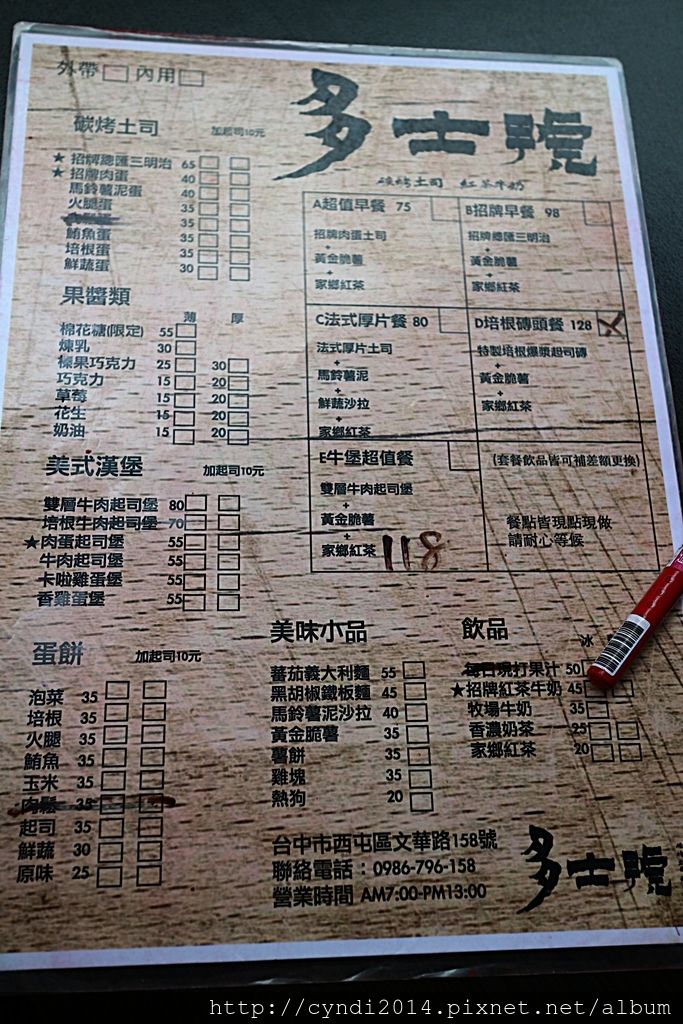 外帶 內用
多士號
碳烤土司 紅茶牛奶
碳烤土司 加起司10元
★ 招牌總匯三明治 65
★ 招牌肉蛋 40
馬鈴薯泥蛋 40
火腿蛋 35
35
鮪魚蛋 35
培根蛋 35
鮮蔬蛋 30
果醬類
薄 厚
棉花糖(限定) 55
煉乳 30
榛果巧克力 25 30
巧克力 15 20
草莓 15 20
花生 15 20
奶油 15 20
美式漢堡 加起司10元
雙層牛肉起司堡 80
培根牛肉起司堡 70
★肉蛋起司堡 55
牛肉起司堡 55
卡啦雞蛋堡 55
香雞蛋堡 55
蛋餅 加起司10元
泡菜 35
培根 35
火腿 35
鮪魚 35
玉米 35
肉鬆 35
起司 35
鮮蔬 30
原味 25
A超值早餐 75
招牌肉蛋土司
+
黃金脆薯
+
家鄉紅茶
B招牌早餐 98
招牌總匯三明治
+
黃金脆薯
+
家鄉紅茶
C法式厚片餐 80
法式厚片土司
+
馬鈴薯泥
+
鮮蔬沙拉
+
家鄉紅茶
D培根磚頭餐 128
特製培根爆漿起司磚
+
黃金脆薯
+
家鄉紅茶
E牛堡超值餐
雙層牛肉起司堡
+
黃金脆薯
+
家鄉紅茶 118
(套餐飲品皆可補差額更換)
餐點皆現點現做
請耐心等候
美味小品
蕃茄義大利麵 55
黑胡椒鐵板麵 45
馬鈴薯泥沙拉 40
黃金脆薯 35
薯餅 35
雞塊 35
熱狗 20
飲品
冰
每日現打果汁 50
★招牌紅茶牛奶 45
牧場牛奶 35
香濃奶茶 25
家鄉紅茶 20
台中市西屯區文華路158號
聯絡電話：0986-796-158
營業時間 AM7:00-PM13:00
多士號
http://cyndi2014.pixnet.net/album